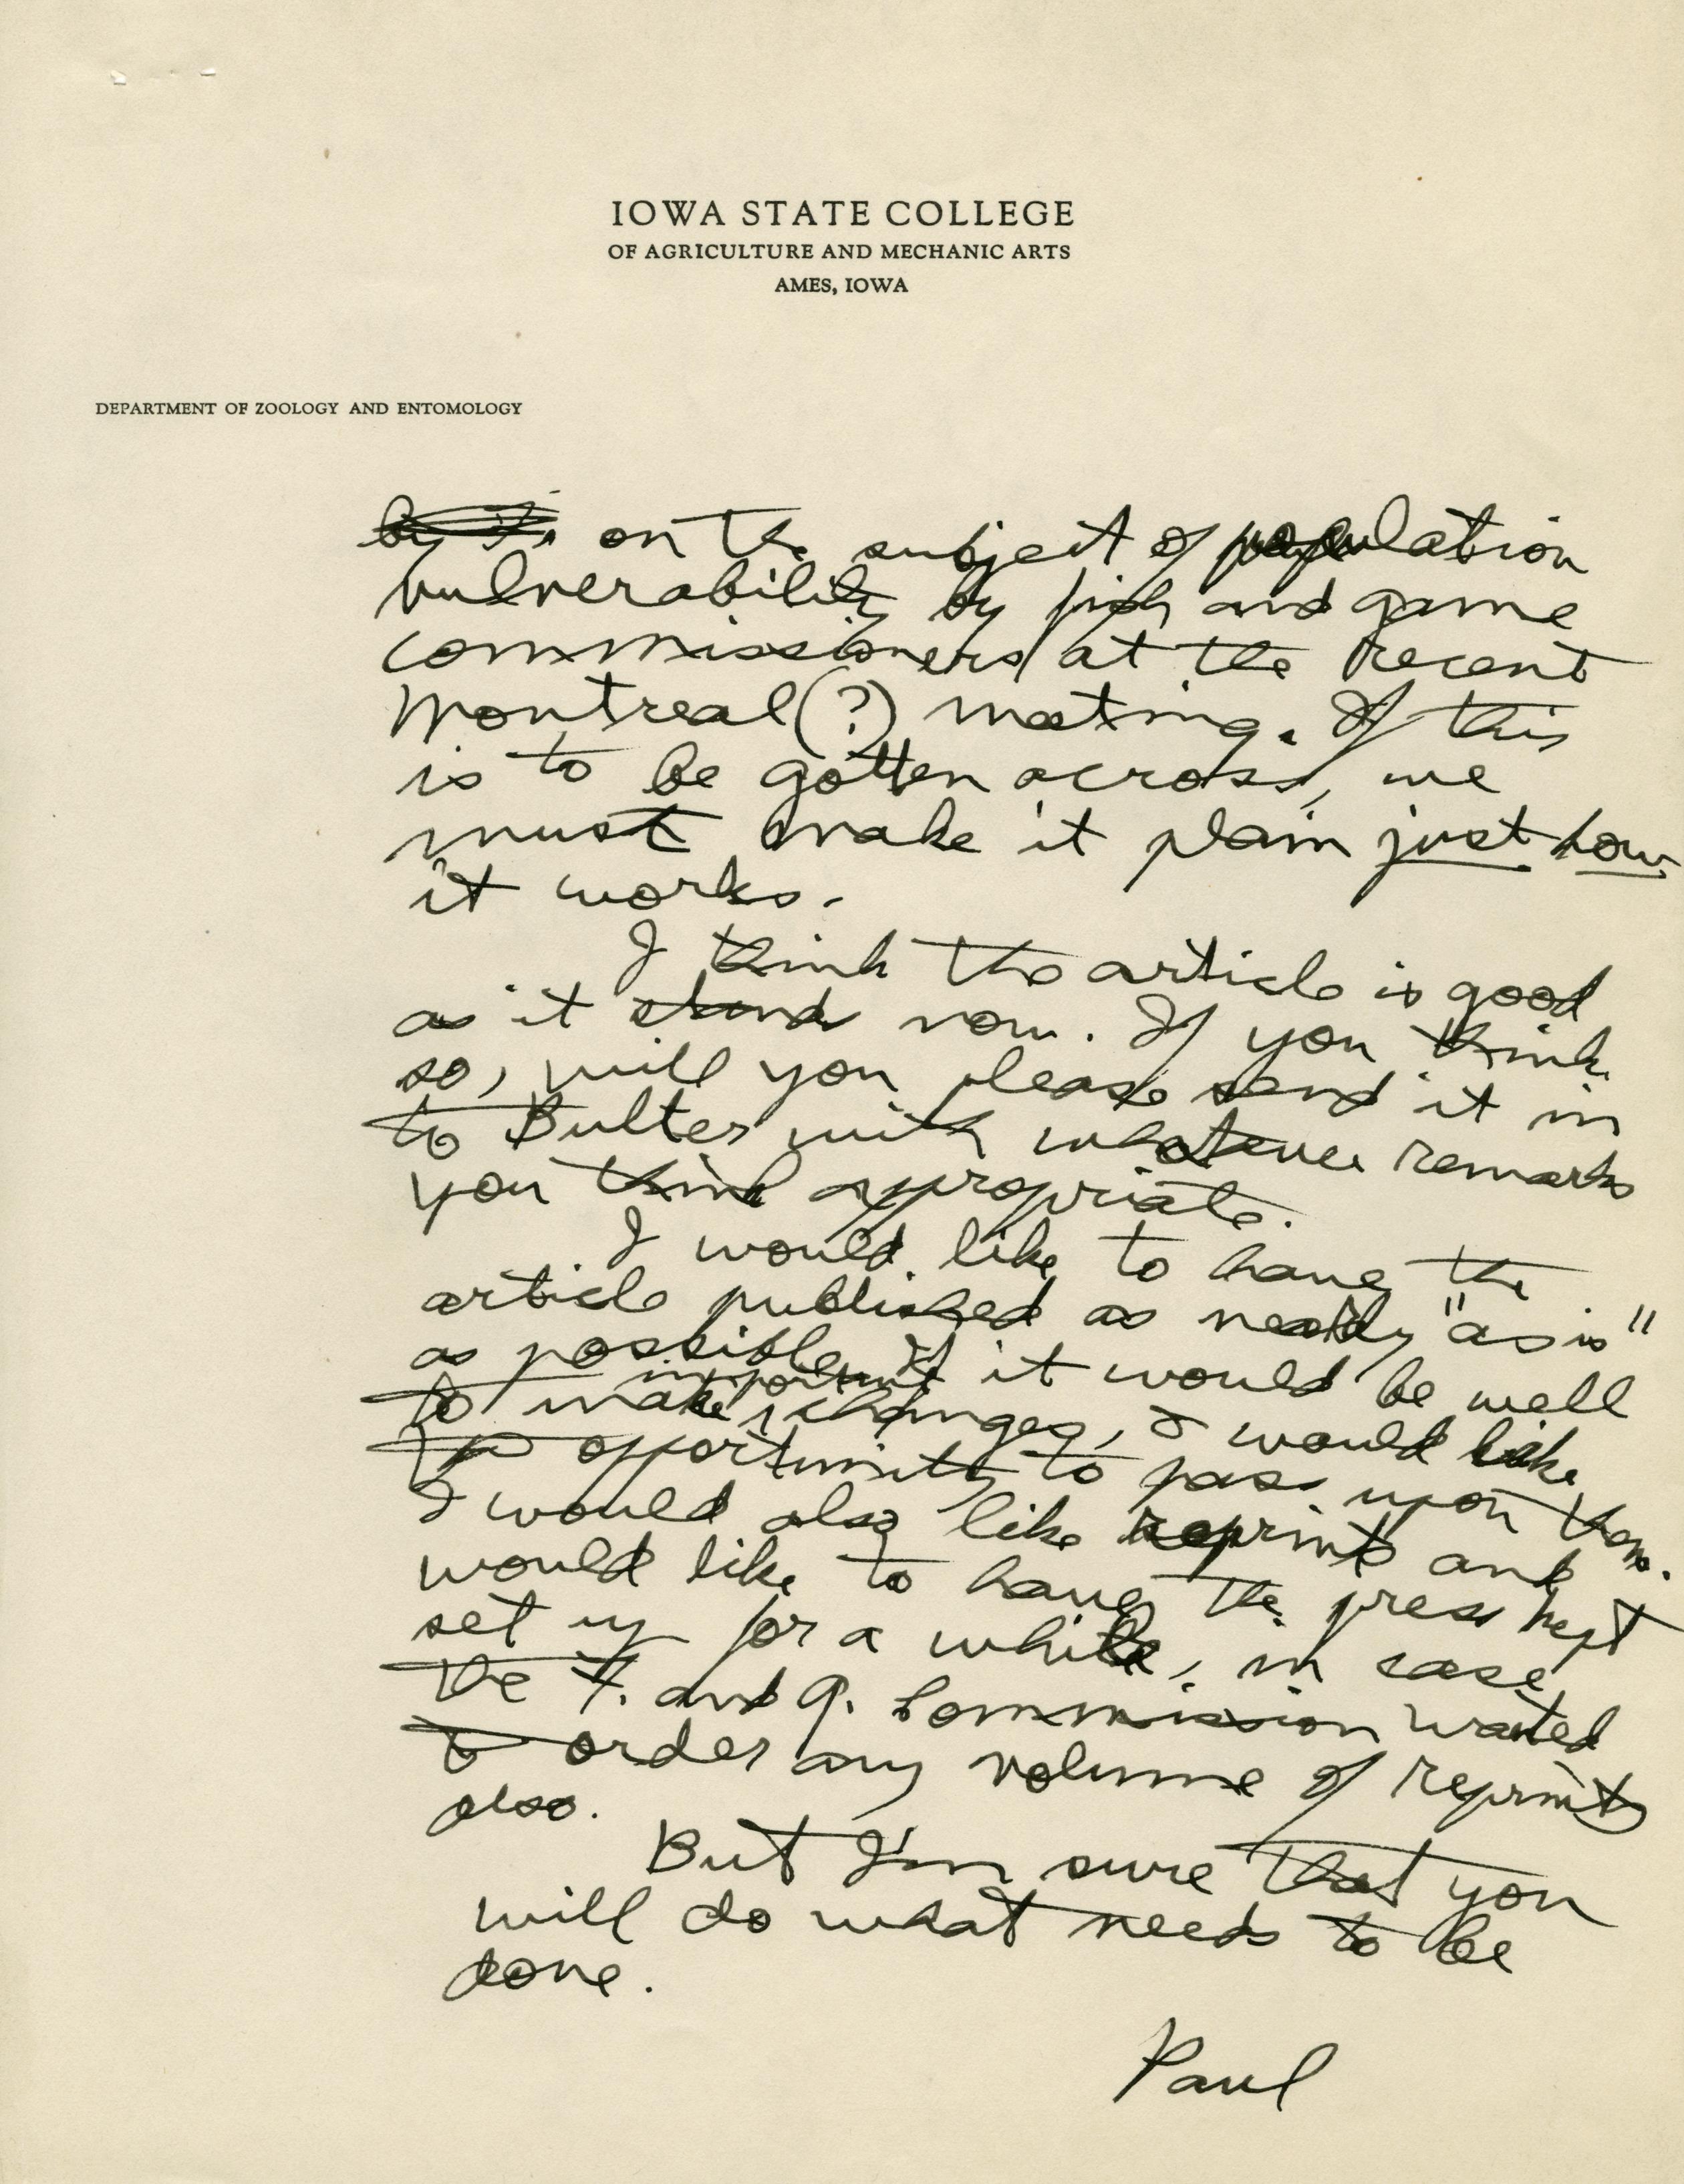 IOWA STATE COLLEGE
OF AGRICULTURE AND MECHANIC ARTS
AMES, IOWA
DEPARTMENT OF ZOOLOGY AND ENTOMOLOGY
on the subject of population
vulnerability by fish and game
commissioners at the recent
Montreal (?) meeting. If this
is to be gotten across, we
must make it plain just how
it works.
I think the article is good
as it stands now. If you think
so, will you please send it in
to Butler with whatever remarks
you think appropriate.
I would like to have the
article published as nearly "as is"
as possible. If it would be well
to make important changes, I would like
opportunity to pass upon them.
I would also like reprints and
would like to have the press kept
set up for a while, in case
the F. and G. Commission wanted
to order any volume of reprints
also.
But I'm sure that you
will do what needs to be
done.
Paul